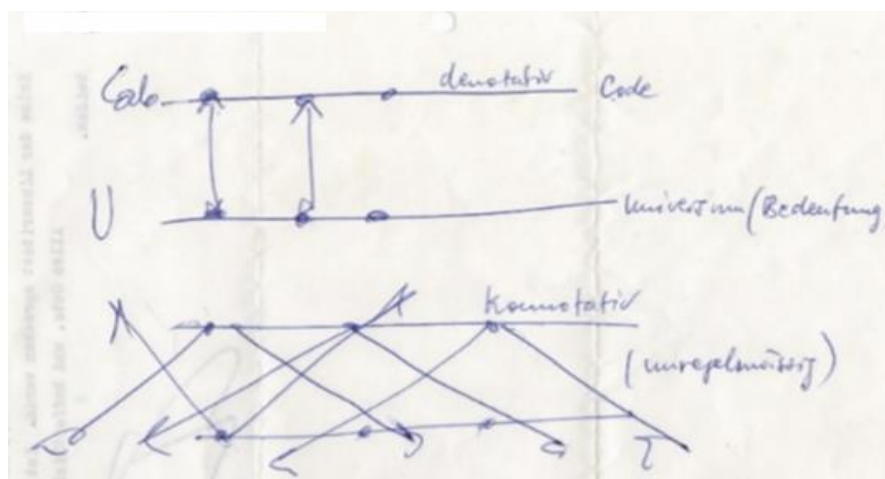 denotativ
Code Code
U Universum (Bedeutung
konnotativ
(unregelmässig)